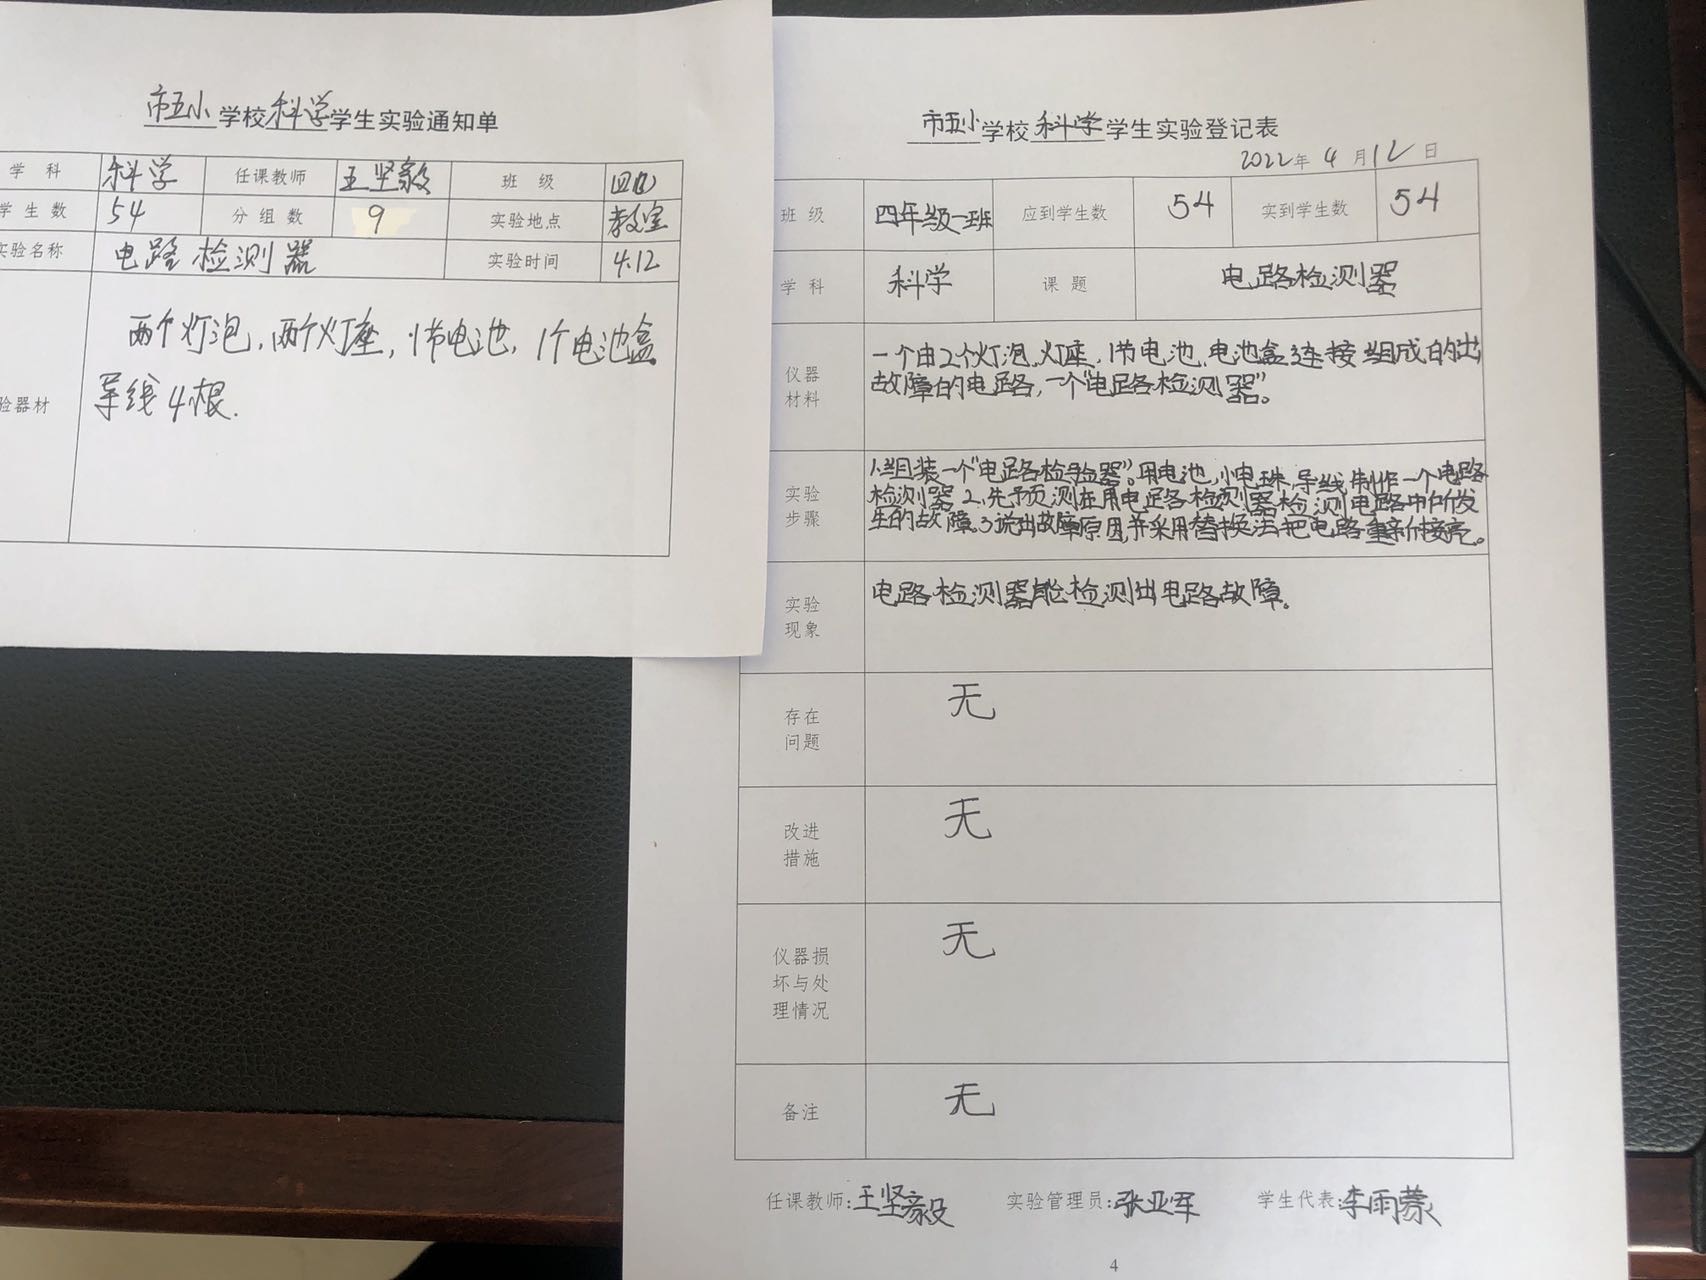 市五小学校科学学生实验通知单
学 科 科学 任课教师 王坚毅 班 级 四(1)
学生数 54 分组数 9 实验地点 教室
实验名称 电路检测器 实验时间 4.12
验器材
两个灯泡,两个灯座,1节电池,1个电池盒
导线4根.
市五小学校科学学生实验登记表
2022年4月12日
班 级 四年级一班 应到学生数 54 实到学生数 54
学 科 科学 课 题 电路检测器
仪器
材料
一个由2个灯泡、灯座、1节电池、电池盒连接组成的出
故障的电路,一个"电路检测器"。
实验
步骤
1.组装一个"电路检验器"。用电池,小电珠,导线制作一个电路
检测器 2.先予页测在用电路检测器检测电路中所发
生的故障。3.说出故障原因,并采用替换法把电路重新接亮。
实验
现象
电路检测器能检测出电路故障。
存在
问题
无
改进
措施
无
仪器损
坏与处
理情况
无
备注
无
任课教师:王坚毅 实验管理员:张亚军 学生代表:李雨蒙
4